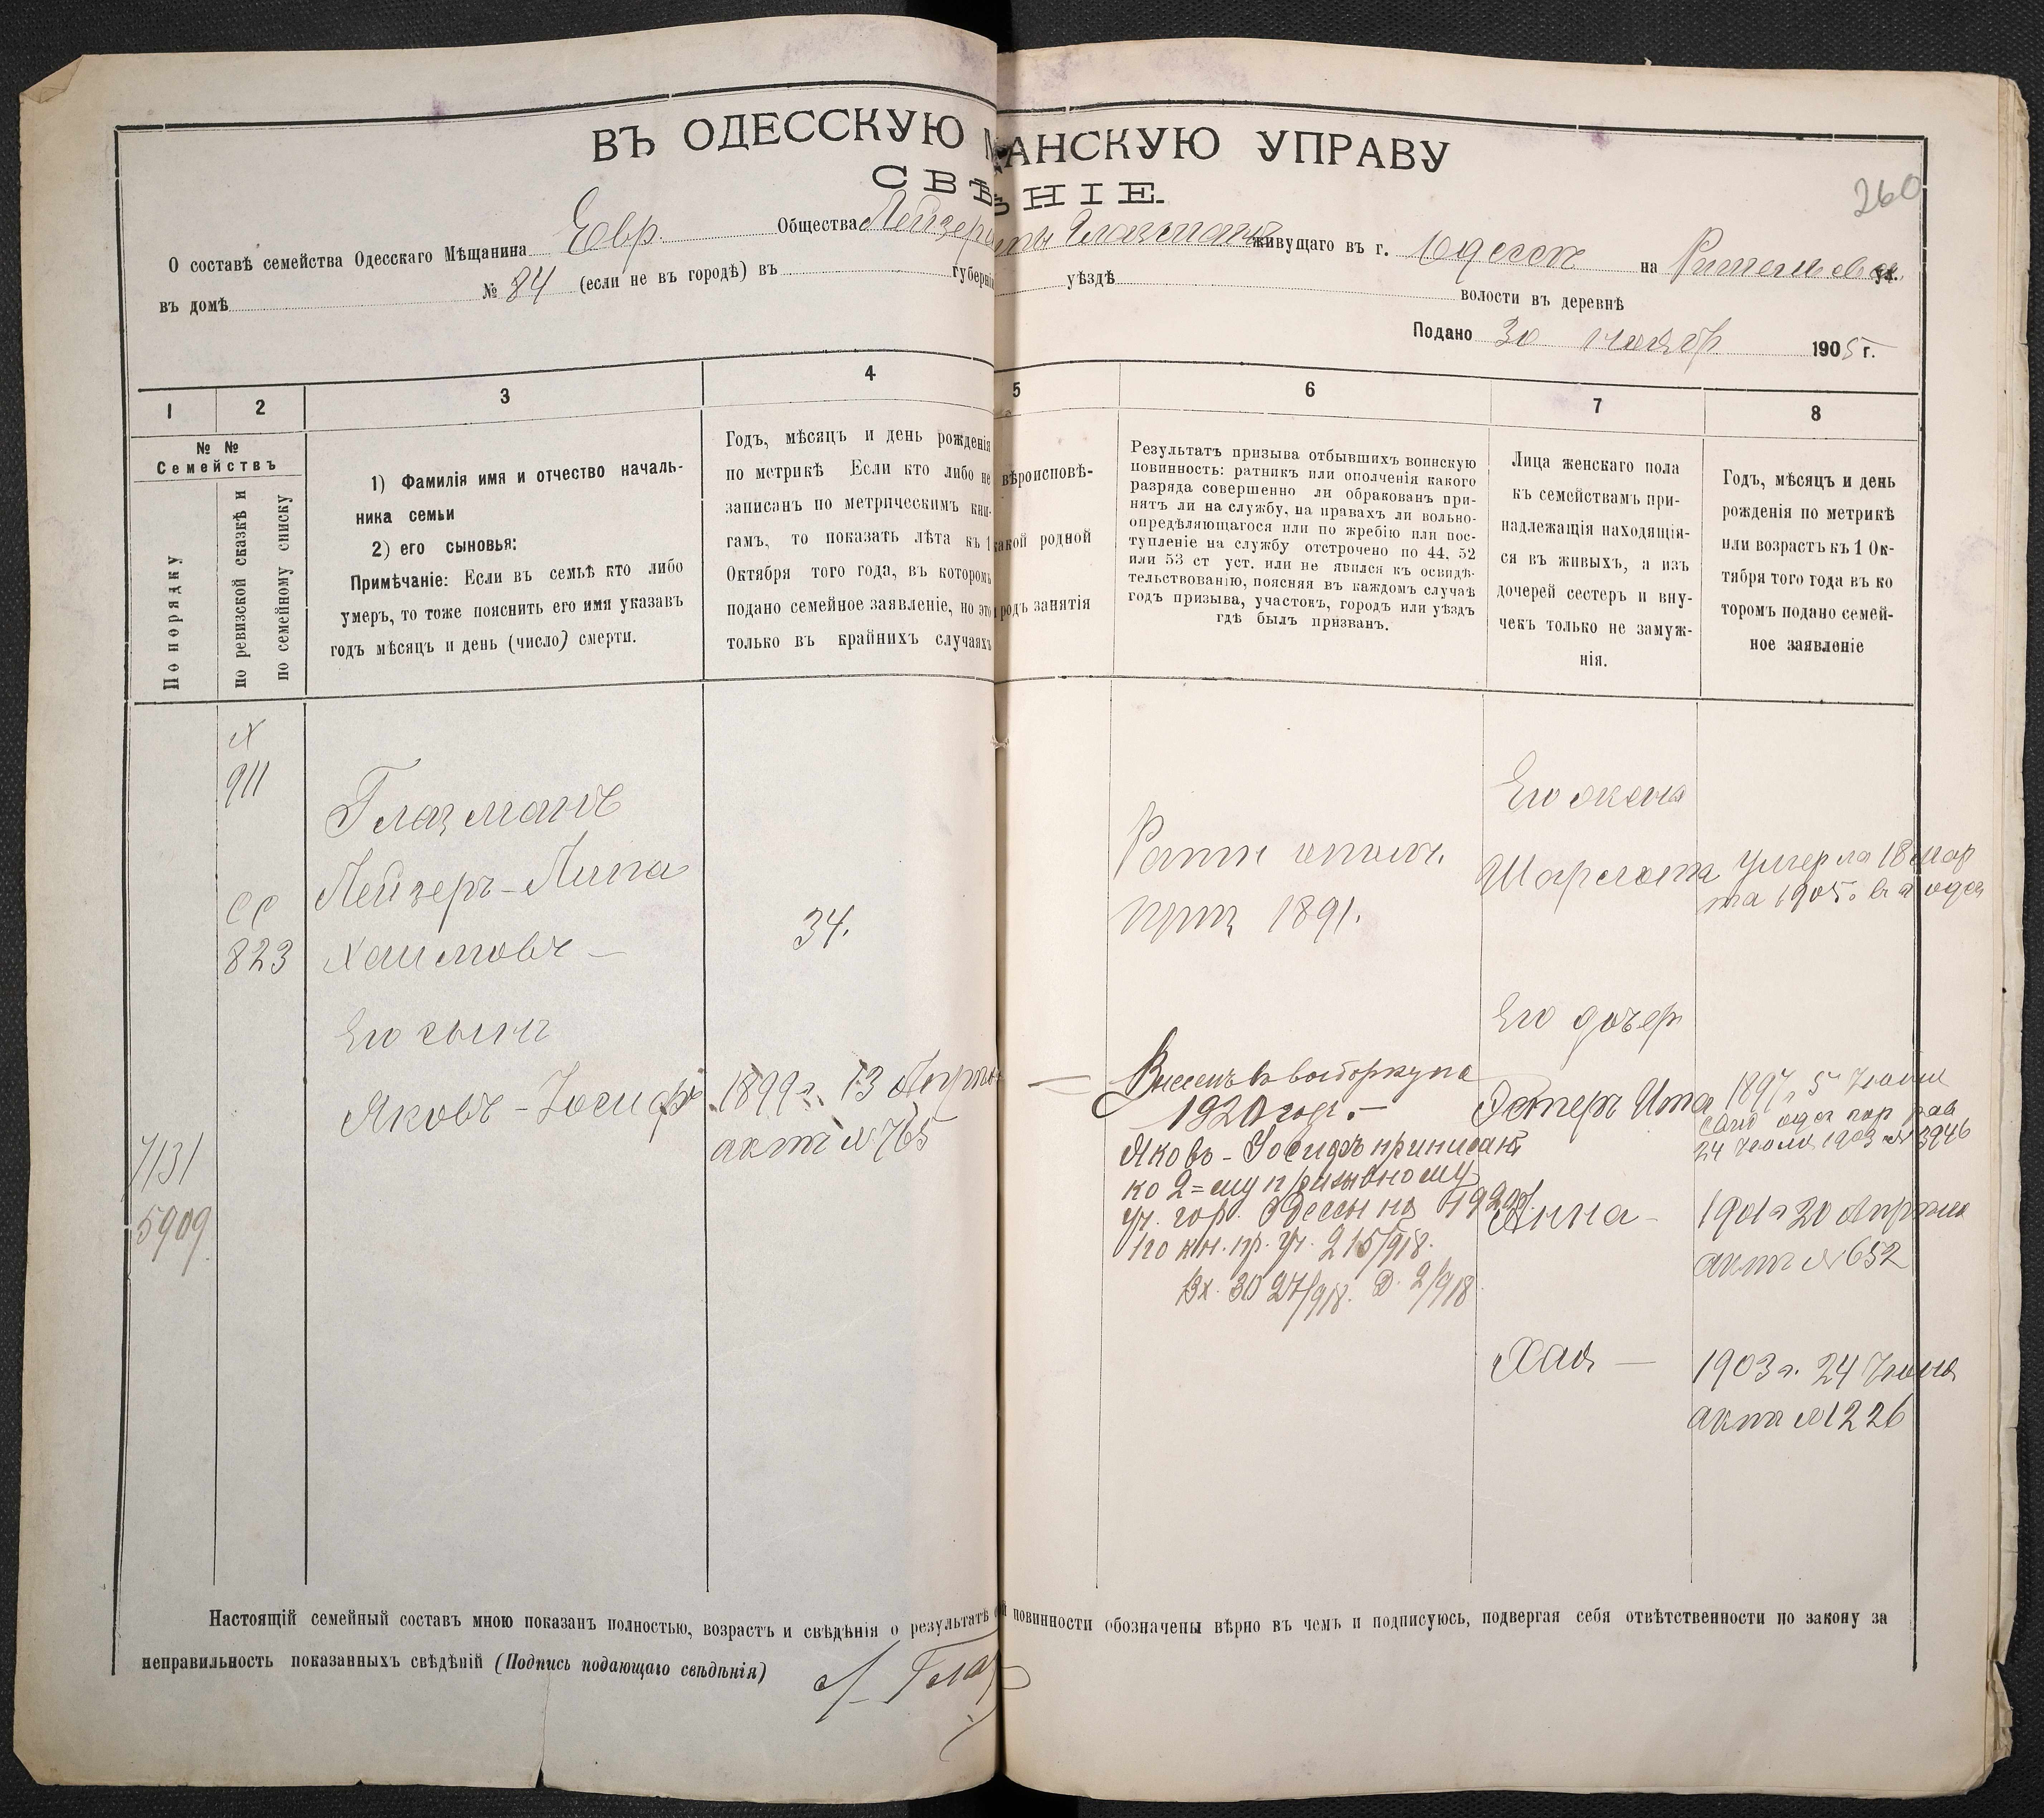 ВЪ ОДЕССКУЮ М АНСКУЮ УПРАВУ
СВѢ НІЕ.
260
О составѣ семейства Одесскаго Мѣщанина Евр. Общества Лейзера Липы Глазмана живущаго въ г. Одессѣ на Ришельевск ул.
въ домѣ № 84 (если не въ городѣ) въ губерні уѣздѣ волости въ деревнѣ
Подано 30 Ноябр 1905 г.
1 2 3 4 5 6 7 8
№ №
Семействъ
По порядку
по ревизской сказкѣ и
по семейному списку
1) Фамилія имя и отчество началь-
ника семьи
2) его сыновья:
Примѣчаніе: Если въ семьѣ кто либо
умеръ, то тоже пояснить его имя указавъ
годъ мѣсяцъ и день (число) смерти.
Годъ, мѣсяцъ и день рожденія
по метрикѣ Если кто либо не
записанъ по метрическимъ кни-
гамъ, то показать лѣта къ 1
Октября того года, въ которомъ
подано семейное заявленіе, но это
только въ крайнихъ случаяхъ
вѣроисповѣ-
какой родной
родъ занятія
Результатъ призыва отбывшихъ воинскую
повинность: ратникъ или ополченія какого
разряда совершенно ли обракованъ при-
нятъ ли на службу, на правахъ ли вольно-
опредѣляющагося или по жребію или пос-
тупленіе на службу отсрочено по 44. 52
или 53 ст уст. или не явился къ освидѣ-
тельствованію, поясняя въ каждомъ случаѣ
годъ призыва, участокъ, городъ или уѣздъ
гдѣ былъ призванъ.
Лица женскаго пола
къ семействамъ при-
надлежащія находящія-
ся въ живыхъ, а изъ
дочерей сестеръ и вну-
чекъ только не замуж-
нія.
Годъ, мѣсяцъ и день
рожденія по метрикѣ
или возрастъ къ 1 Ок-
тября того года въ ко
торомъ подано семей-
ное заявленіе
№
911
СС
823
Глазманъ
Лейзеръ-Липа
Хаимовъ —
34.
Ратн ополч.
приз 1891.
Его жена
Шарлота
умерла 18 мар
та 1905 г. в г Одес
Его сынъ
Яковъ-Іосифъ
1899 г. 13 Апрѣля
актъ № 765
—
Внесенъ въ выборку на
1920 годъ. —
Яковъ-Іосифъ приписанъ
ко 2=му призывному
уч. гор. Одессы на 1920 г.
по кн. пр. уч. 215/918.
Вх. 3027/918. Д. 2/918
7131
5909
Его дочер
Эстеръ Ита
1897 г. 5 Іюня
24 Іюля 1903 № 3946
Анна —
1901 г 20 Апрѣля
актъ № 652
Хая —
1903 г. 24 Іюня
актъ № 1226
Настоящій семейный составъ мною показан полностью, возрастъ и свѣдѣнія о результатѣ повинности обозначены вѣрно въ чемъ и подписуюсь, подвергая себя отвѣтственности по закону за
неправильность показанныхъ свѣдѣній (Подпись подающаго свѣдѣнія) Л. Глаз